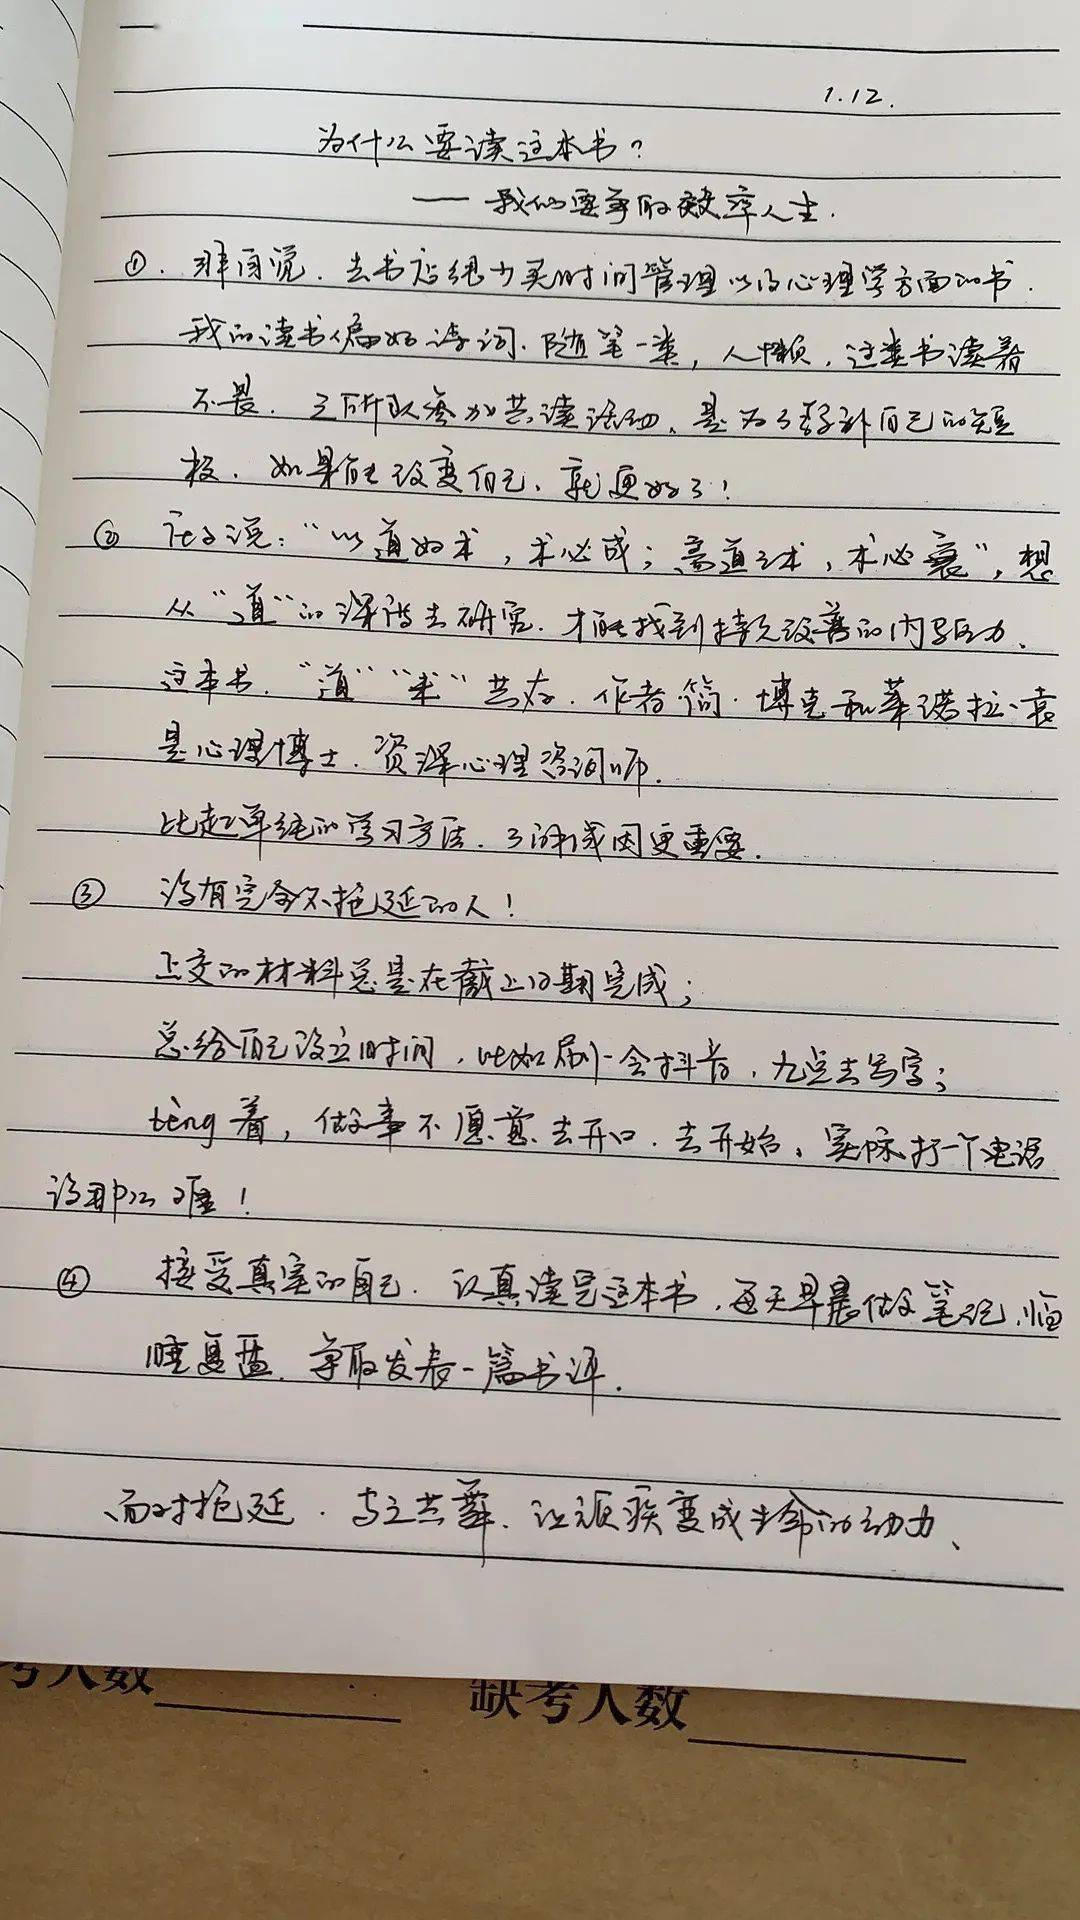 1.12.
为什么要读这本书？
—— 我们要争取效率人生.
①. 坦白说. 去书店很少买时间管理以及心理学方面的书.
我的读书偏好诗词. 随笔一类, 人懒. 这类书读着
不累. 之所以参加共读活动, 是为了弥补自己的短
板. 如果能改变自己, 就更好了!
② 庄子说: "以道驭术, 术必成; 离道之术, 术必衰", 想
从"道"的深层去研究. 才能找到持久改善的内驱力.
这本书. "道" "术" 共存. 作者简·博克和莱诺拉·袁
是心理博士. 资深心理咨询师.
比起单纯的学习方法. 了解成因更重要.
③ 没有完全不拖延的人!
上交的材料总是在截止日期完成;
总给自己设立时间, 比如刷一会抖音, 九点去写字;
tèng着, 做事不愿意去开口. 去开始, 实际打一个电话
没那么难!
④ 接受真实的自己. 认真读完这本书, 每天早晨做笔记, 临
睡复盘. 争取发表一篇书评.
面对拖延. 与之共舞. 让顽疾变成生命的动力.
考人数 缺考人数